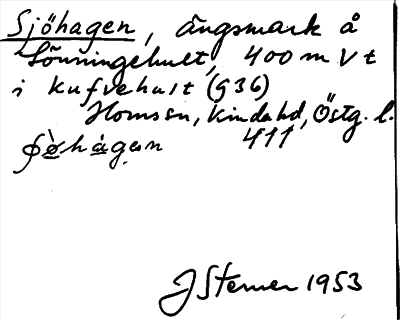 Sjöhagen, ängsmark å
Lönningehult, 400 m V t
i Kufvehult (936)
Hornssn, Kinda hd, Östg. l.
411
J Sterner 1953